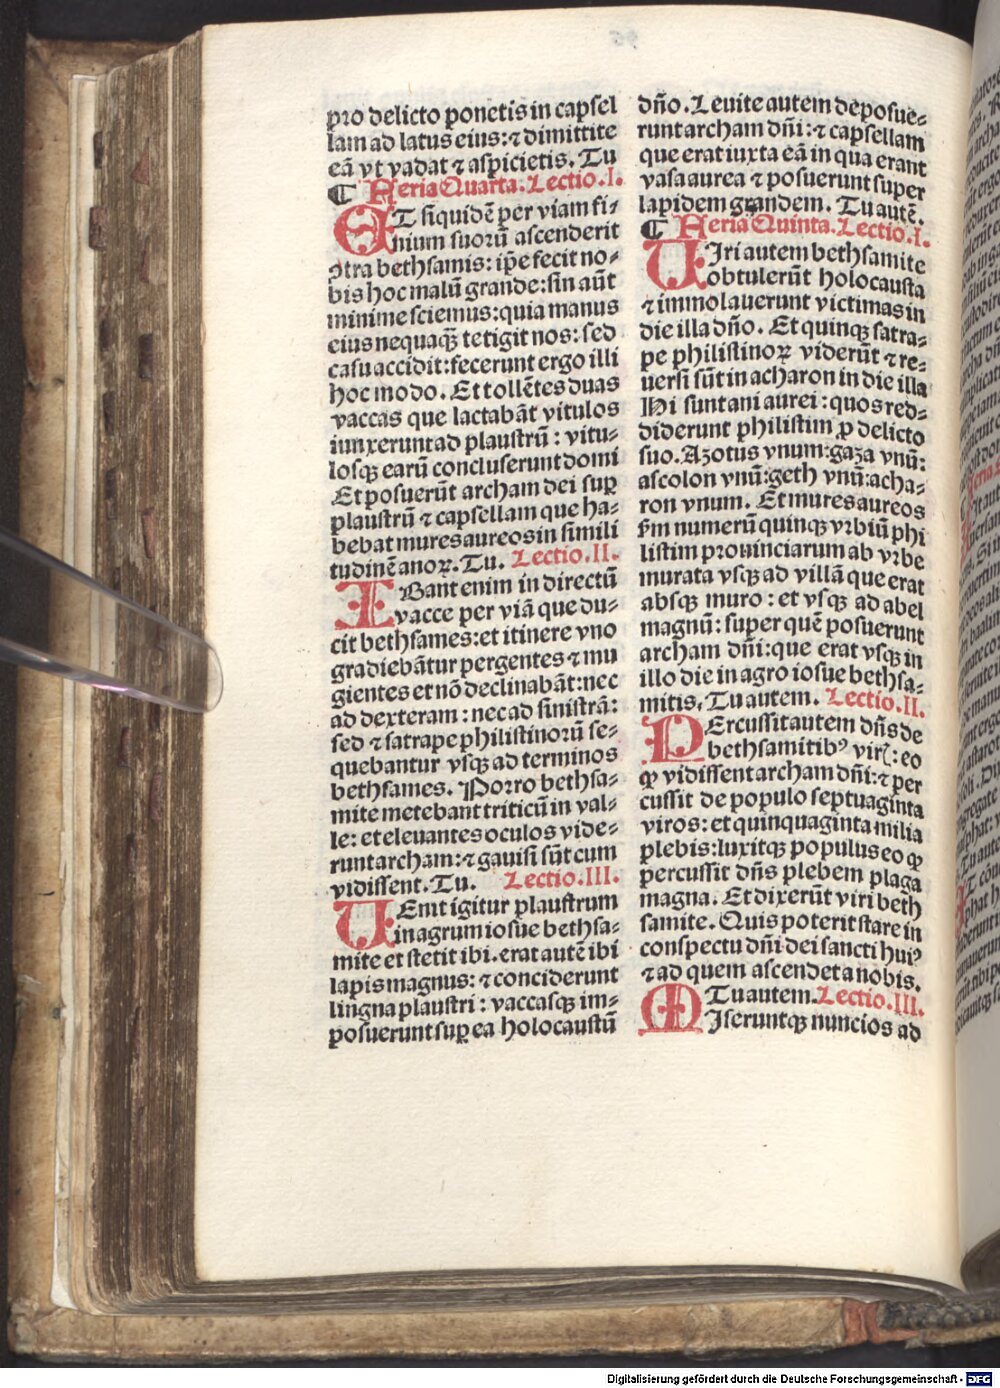 pro delicto ponetis in capsel
lam ad latus eius: ⁊ dimittite
eā vt vadat ⁊ aspicietis. Tu
¶ Feria Quarta. Lectio .I.
ET siquidē per viam fi⸗
nium suorū ascenderit
ↄtra bethsamis: ip̄e fecit no⸗
bis hoc malū grande: sin aūt
minime sciemus: quia manus
eius nequaqꝫ tetigit nos: sed
casu accidit: fecerunt ergo illi
hoc modo. Et tollētes duas
vaccas que lactabāt vitulos
iunxerunt ad plaustrū: vitu⸗
losqꝫ earū concluserunt domi
Et posuerūt archam dei suꝑ
plaustrū ⁊ capsellam que ha⸗
bebat mures aureos in simili
tudinē anoꝝ. Tu. Lectio .II.
IBant enim in directū
vacce per viā que du⸗
cit bethsames: et itinere vno
gradiebātur pergentes ⁊ mu
gientes et nō declinabāt: nec
ad dexteram: nec ad sinistrā:
sed ⁊ satrape philistinorū se⸗
quebantur vsqꝫ ad terminos
bethsames. Porro bethsa⸗
mite metebant triticū in val⸗
le: et eleuantes oculos vide⸗
runt archam: ⁊ gauisi sūt cum
vidissent. Tu. Lectio .III.
UEnit igitur plaustrum
in agrum iosue bethsa⸗
mite et stetit ibi. erat autē ibi
lapis magnus: ⁊ conciderunt
lingna plaustri: vaccasqꝫ im⸗
posuerunt suꝑ ea holocaustū
dn̄o. Leuite autem deposue⸗
runt archam dn̄i: ⁊ capsellam
que erat iuxta eā in qua erant
vasa aurea ⁊ posuerunt super
lapidem grandem. Tu autē.
¶ Feria Quinta. Lectio .I.
UIri autem bethsamite
obtulerūt holocausta
⁊ immolauerunt victimas in
die illa dn̄o. Et quinqꝫ satra⸗
pe philistinoꝝ viderūt ⁊ re⸗
uersi sūt in acharon in die illa
Hi sunt ani aurei: quos red⸗
diderunt philistim ꝓ delicto
suo. Azotus vnum: gaza vnū:
ascolon vnū: geth vnū: acha⸗
ron vnum. Et mures aureos
ẜm numerū quinqꝫ vrbiū phi
listim prouinciarum ab vrbe
murata vsqꝫ ad villā que erat
absqꝫ muro: et vsqꝫ ad abel
magnū: super quē posuerunt
archam dn̄i: que erat vsqꝫ in
illo die in agro iosue bethsa⸗
mitis, Tu autem. Lectio .II.
PErcussit autem dn̄s de
bethsamitibꝰ virꝭ: eo
ꝙ vidissent archam dn̄i: ⁊ per
cussit de populo septuaginta
viros: et quinquaginta milia
plebis: luxitqꝫ populus eo ꝙ
percussit dn̄s plebem plaga
magna. Et dixerūt viri beth
samite. Quis poterit stare in
conspectu dn̄i dei sancti huiꝰ
⁊ ad quem ascendet a nobis.
Tu autem. Lectio .III.
MIseruntqꝫ nuncios ad
Digitalisierung gefördert durch die Deutsche Forschungsgemeinschaft - DFG